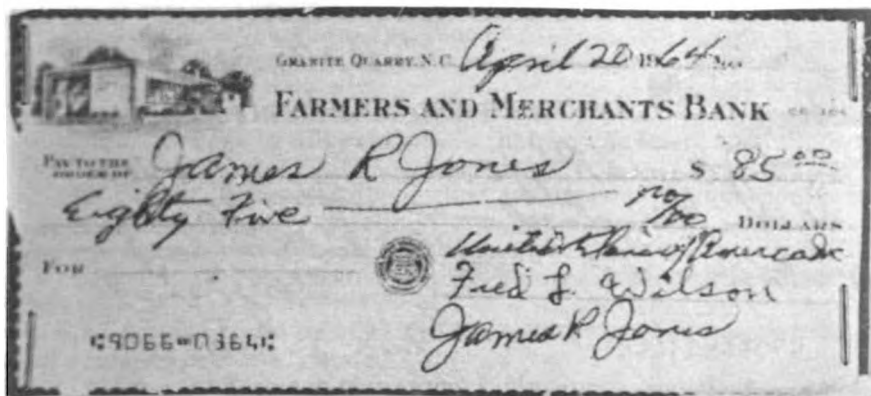 GRANITE QUARRY, N.C. April 20 1964 No.
FARMERS AND MERCHANTS BANK
PAY TO THE ORDER OF James R Jones $ 85.00
Eighty Five no/100 DOLLARS
United Klans of America Inc
FOR
Fred L. Wilson
James R Jones
⑆9066⑉0364⑆